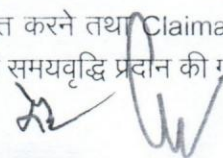 करने तथा Claima
समयवृद्धि प्रदान की